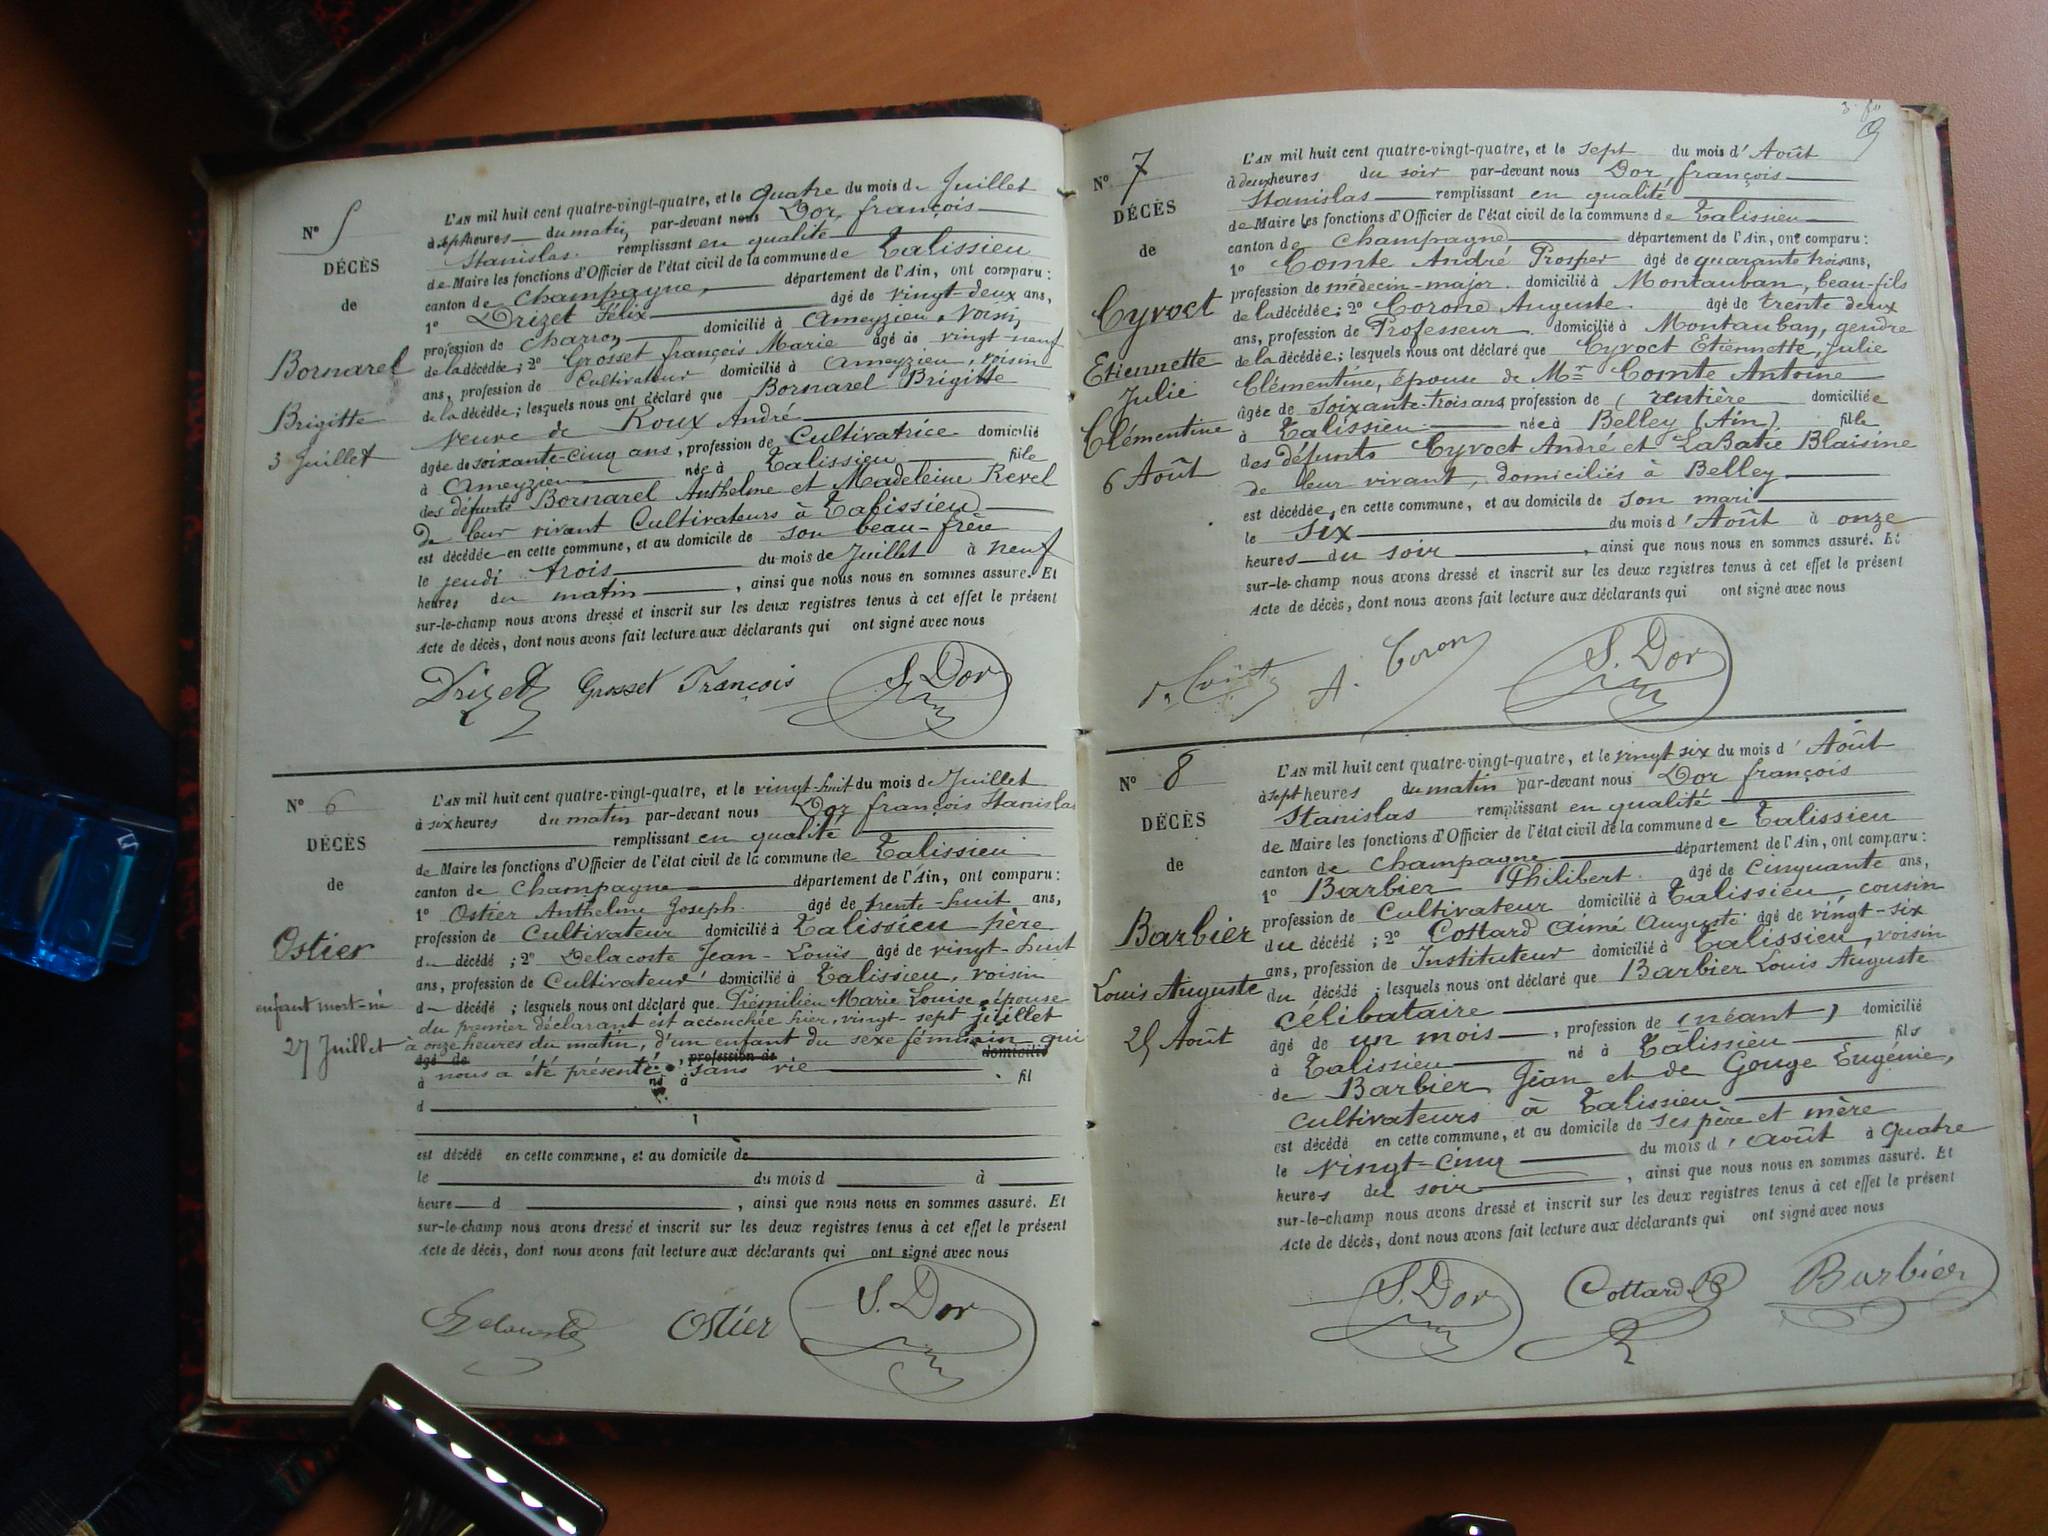 N° 5
DÉCÈS
de
Bornarel
Brigitte
3 Juillet
L'AN mil huit cent quatre-vingt-quatre, et le quatre du mois de Juillet
à sept heures du matin, par-devant nous Dor, françois
Stanislas remplissant en qualité
de Maire les fonctions d'Officier de l'état civil de la commune de Talissieu
canton de Champagne, département de l'Ain, ont comparu :
1° Drizet Félix âgé de vingt-deux ans,
profession de Charron domicilié à Ameyzieu, voisin
de la décédée ; 2° Grosset françois Marie âgé de vingt-neuf
ans, profession de Cultivateur domicilié à Ameyzieu, voisin
de la décédée ; lesquels nous ont déclaré que Bornarel Brigitte
veuve de Roux André
âgée de soixante-cinq ans, profession de Cultivatrice domicilié
à Ameyzieu née à Talissieu fille
des défunts Bornarel Anthelme et Madeleine Revel
de leur vivant Cultivateurs à Talissieu
est décédée en cette commune, et au domicile de son beau-frère
le jeudi trois du mois de Juillet à neuf
heures du matin, ainsi que nous nous en sommes assuré. Et
sur-le-champ nous avons dressé et inscrit sur les deux registres tenus à cet effet le présent
Acte de décès, dont nous avons fait lecture aux déclarants qui ont signé avec nous
Drizet Grosset François S. Dor
N° 6
DÉCÈS
de
Ostier
enfant mort-né
27 Juillet
L'AN mil huit cent quatre-vingt-quatre, et le vingt-huit du mois de Juillet
à six heures du matin par-devant nous Dor françois Stanislas
remplissant en qualité
de Maire les fonctions d'Officier de l'état civil de la commune de Talissieu
canton de Champagne département de l'Ain, ont comparu :
1° Ostier Anthelme Joseph âgé de trente-huit ans,
profession de Cultivateur domicilié à Talissieu père
d décédé ; 2° Delacoste Jean-Louis âgé de vingt huit
ans, profession de Cultivateur domicilié à Talissieu, voisin
d décédé ; lesquels nous ont déclaré que Prémilieu Marie Louise, épouse
du premier déclarant est accouchée hier, vingt-sept juillet
à onze heures du matin, d'un enfant du sexe féminin qui
âgé de , profession de domicilié
à nous a été présenté né à sans vie fil
d
est décédé en cette commune, et au domicile de
le du mois d à
heure d , ainsi que nous nous en sommes assuré. Et
sur-le-champ nous avons dressé et inscrit sur les deux registres tenus à cet effet le présent
Acte de décès, dont nous avons fait lecture aux déclarants qui ont signé avec nous
Delacoste Ostier S. Dor
9
N° 7
DÉCÈS
de
Cyvoct
Etiennette
Julie
Clémentine
6 Août
L'AN mil huit cent quatre-vingt-quatre, et le sept du mois d'Août
à deux heures du soir par-devant nous Dor, françois
Stanislas remplissant en qualité
de Maire les fonctions d'Officier de l'état civil de la commune de Talissieu
canton de Champagne département de l'Ain, ont comparu :
1° Comte André Prosper âgé de quarante trois ans,
profession de médecin-major domicilié à Montauban, beau-fils
de la décédée ; 2° Corone Auguste âgé de trente deux
ans, profession de Professeur domicilié à Montauban, gendre
de la décédée ; lesquels nous ont déclaré que Cyvoct Etiennette, Julie
Clémentine, épouse de Mr Comte Antoine
âgée de soixante-trois ans, profession de (rentière domiciliée
à Talissieu née à Belley (Ain) fille
des défunts Cyvoct André et LaBatie Blaisine
de leur vivant, domiciliés à Belley
est décédée, en cette commune, et au domicile de son mari
le six du mois d'Août à onze
heures du soir, ainsi que nous nous en sommes assuré. Et
sur-le-champ nous avons dressé et inscrit sur les deux registres tenus à cet effet le présent
Acte de décès, dont nous avons fait lecture aux déclarants qui ont signé avec nous
A. Coron S. Dor
N° 8
DÉCÈS
de
Barbier
Louis Auguste
25 Août
L'AN mil huit cent quatre-vingt-quatre, et le vingt six du mois d'Août
à sept heures du matin par-devant nous Dor françois
Stanislas remplissant en qualité
de Maire les fonctions d'Officier de l'état civil de la commune de Talissieu
canton de Champagne département de l'Ain, ont comparu :
1° Barbier Philibert âgé de Cinquante ans,
profession de Cultivateur domicilié à Talissieu, cousin
du décédé ; 2° Cottard Aimé Auguste âgé de vingt-six
ans, profession de Instituteur domicilié à Talissieu, voisin
du décédé ; lesquels nous ont déclaré que Barbier Louis Auguste
célibataire
âgé de un mois, profession de (néant) domicilié
à Talissieu né à Talissieu fils
de Barbier Jean et de Gouge Eugénie,
Cultivateurs à Talissieu
est décédé en cette commune, et au domicile de ses père et mère
le vingt-cinq du mois d'août à Quatre
heures du soir, ainsi que nous nous en sommes assuré. Et
sur-le-champ nous avons dressé et inscrit sur les deux registres tenus à cet effet le présent
Acte de décès, dont nous avons fait lecture aux déclarants qui ont signé avec nous
S. Dor Cottard Barbier